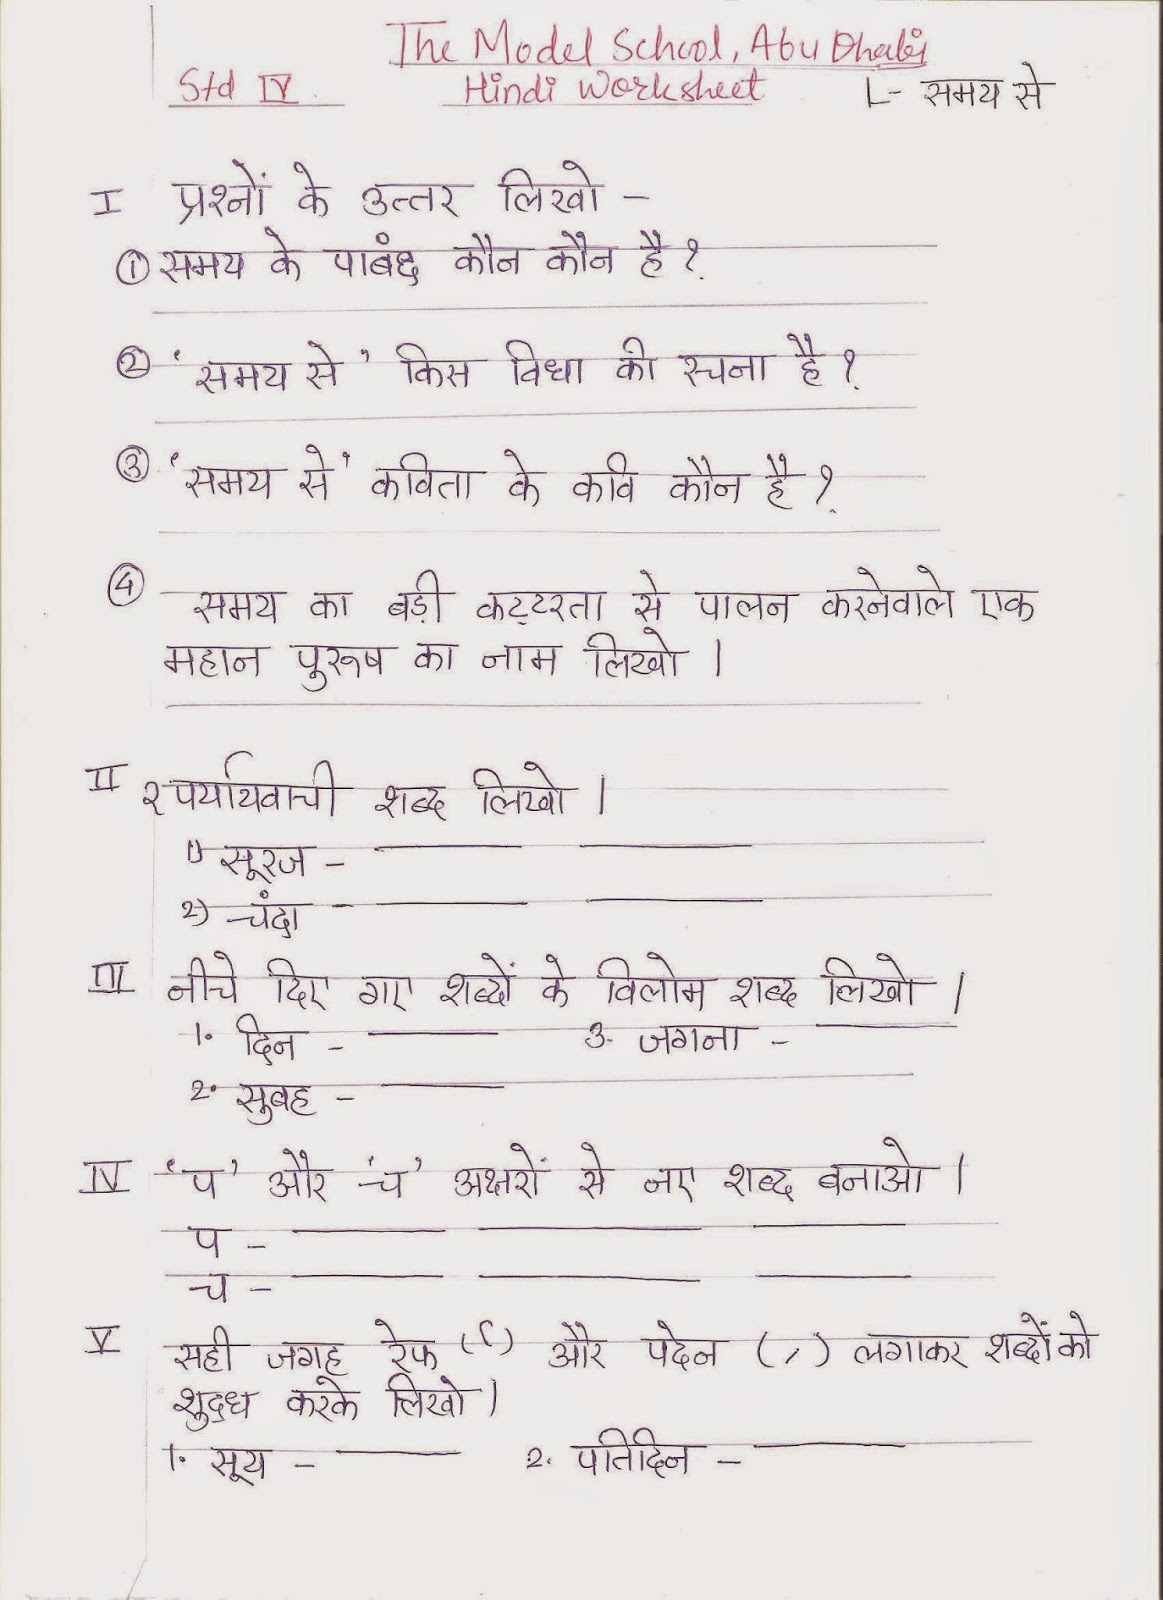 The Model School, Abu Dhabi
Std IV Hindi Worksheet L- समय से
I प्रश्नों के उत्तर लिखो -
① समय के पाबंद कौन कौन है ?
② 'समय से' किस विधा की रचना है ?
③ 'समय से' कविता के कवि कौन है ?
④ समय का बड़ी कट्टरता से पालन करनेवाले एक
महान पुरुष का नाम लिखो ।
II २ पर्यायवाची शब्द लिखो ।
1) सूरज -
2) चंदा -
III नीचे दिए गए शब्दों के विलोम शब्द लिखो ।
1. दिन - 3. जगना -
2. सुबह -
IV 'प' और 'च' अक्षरों से नए शब्द बनाओ ।
प -
च -
V सही जगह रेफ (र्) और पदेन (्र) लगाकर शब्दों को
शुद्ध करके लिखो ।
1. सूय - 2. पतिदिन -